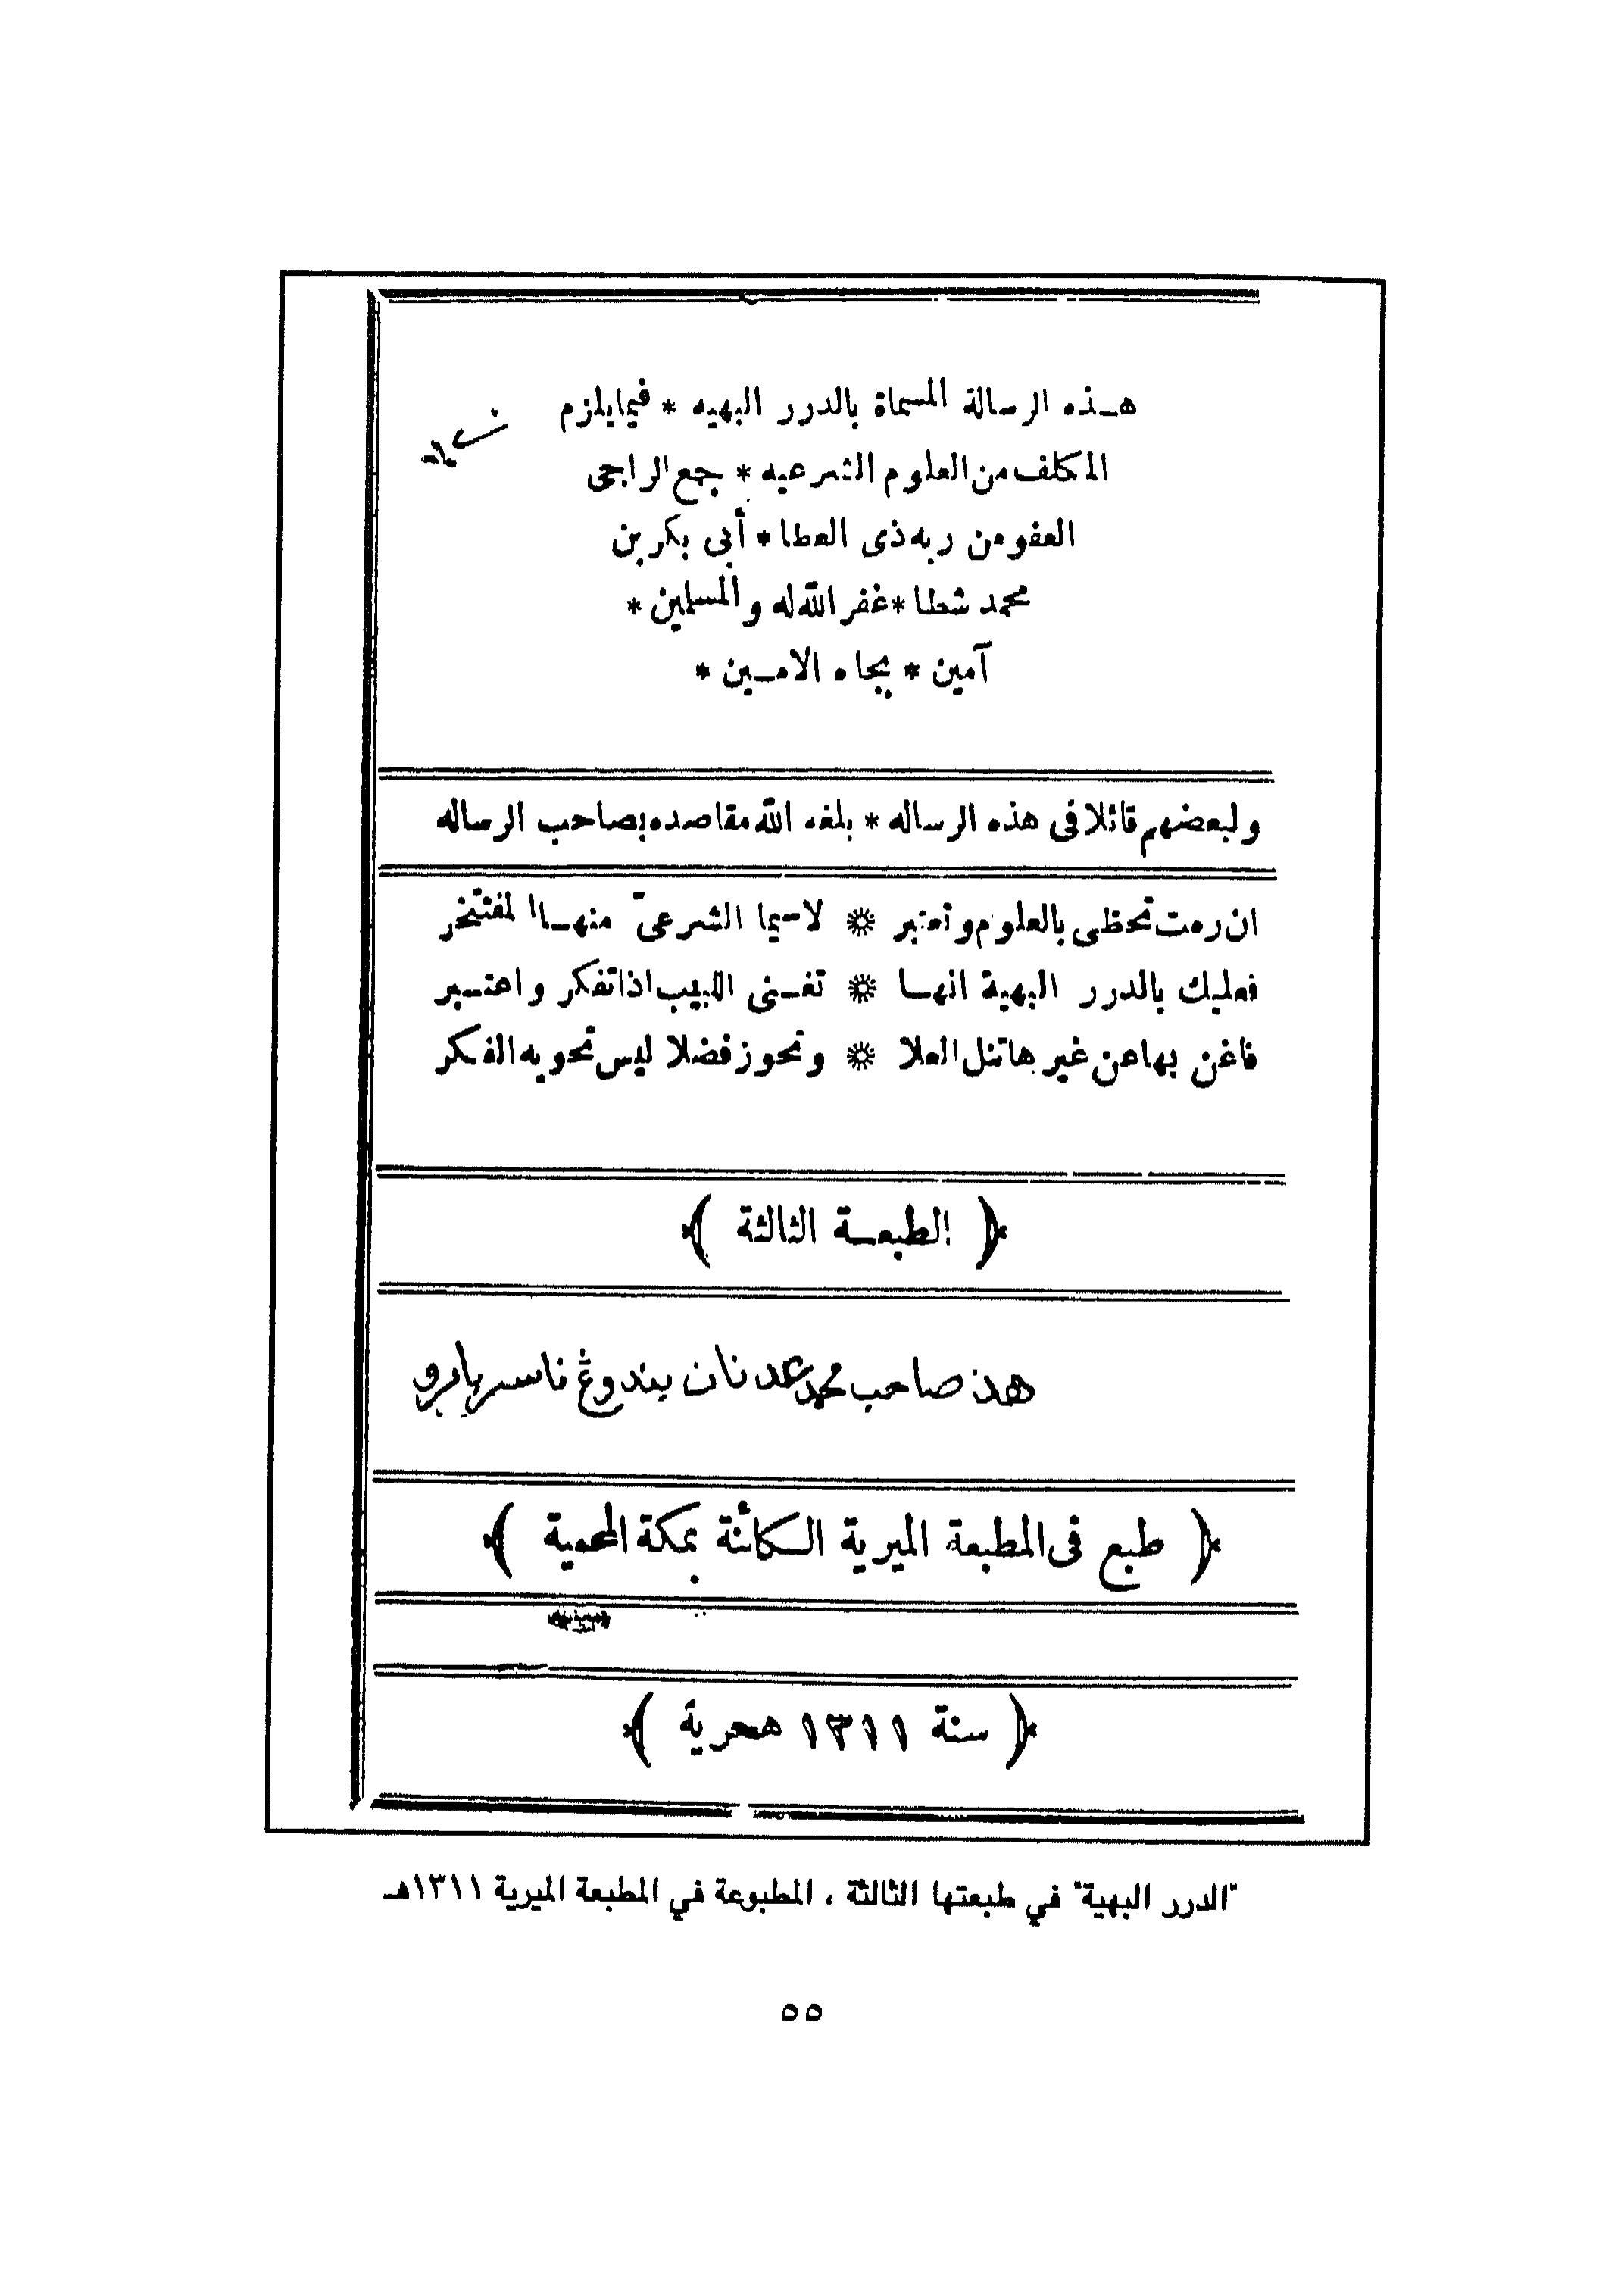 هذه الرسالة المسماة بالدرر البهيه * فيما يلزم
المكلف من العلوم الشرعيه * جمع الراجى
العفو من ربه ذى العطا * أبى بكر بن
محمد شطا * غفر الله له والمسلمين *
آمين * بجاه الامين *
ولبعضهم قائلا فى هذه الرساله * بلغه الله مقاصده بصاحب الرساله
ان رمت تحظى بالعلوم وتعتبر * لاسيما الشرعىّ منها المفتخر
فعليك بالدرر البهية انها * تغنى اللبيب اذا تفكر واعتبر
فاغن بها عن غيرها تنل العلا * وتحوز فضلا ليس تحويه الفكر
﴿ الطبعة الثالثة ﴾
هذ صاحب محمد عدنان بندوڠ ناسر بارو
﴿ طبع فى المطبعة الميرية الكائنة بمكة المحمية ﴾
﴿ سنة ١٣١١ هجرية ﴾
"الدرر البهية" في طبعتها الثالثة ، المطبوعة في المطبعة الميرية ١٣١١هـ
٥٥